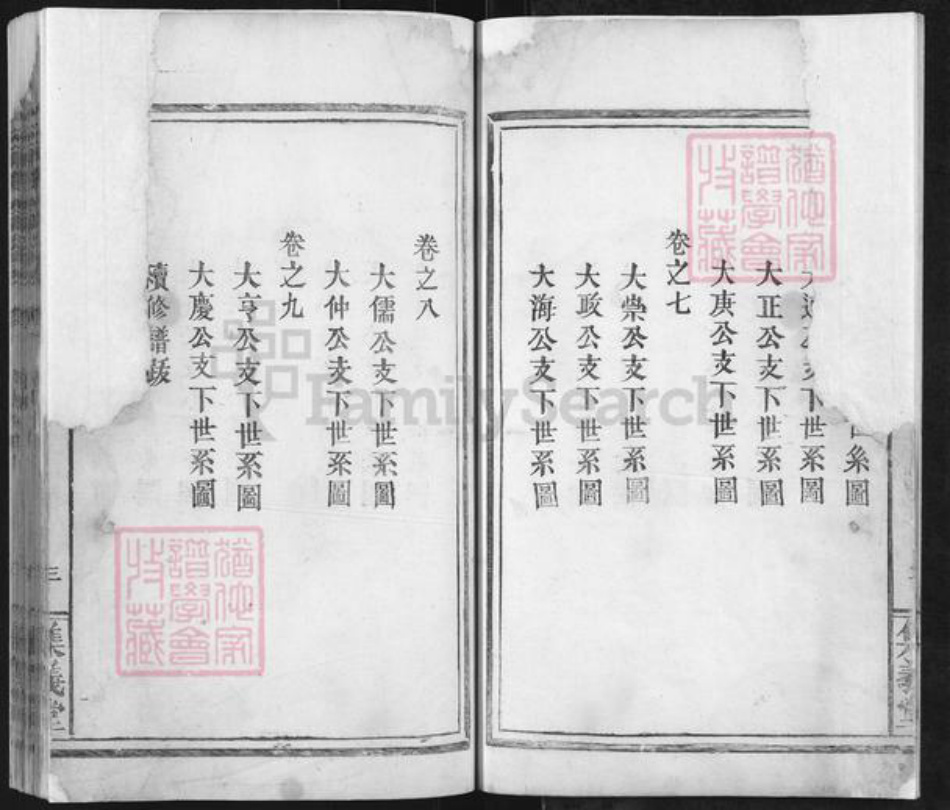 世系圖
公支下世系圖
大正公支下世系圖
大庚公支下世系圖
卷之七
大崇公支下世系圖
大政公支下世系圖
大海公支下世系圖
卷之八
大儒公支下世系圖
大仲公支下世系圖
卷之九
大亨公支下世系圖
大慶公支下世系圖
續修譜跋
三
集義堂
集義堂
譜學會
收藏
譜學會
收藏
FamilySearch